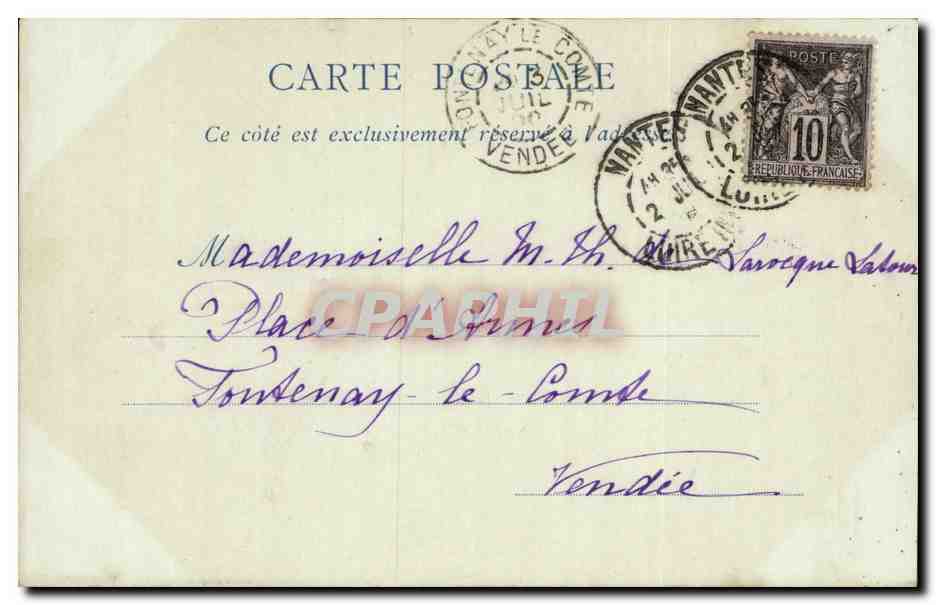 CARTE POSTALE
Ce côté est exclusivement réservé à l'adresse
FONTENAY LE COMTE
3
JUIL
VENDÉE
NANTES
2
LOIRE
NANTES
2
LOIRE INF
POSTE
10
REPUBLIQUE FRANCAISE
Mademoiselle M. Th. de Larocque Latour
Place d'Armes
Fontenay-le-Comte
Vendée
CPAPHIL